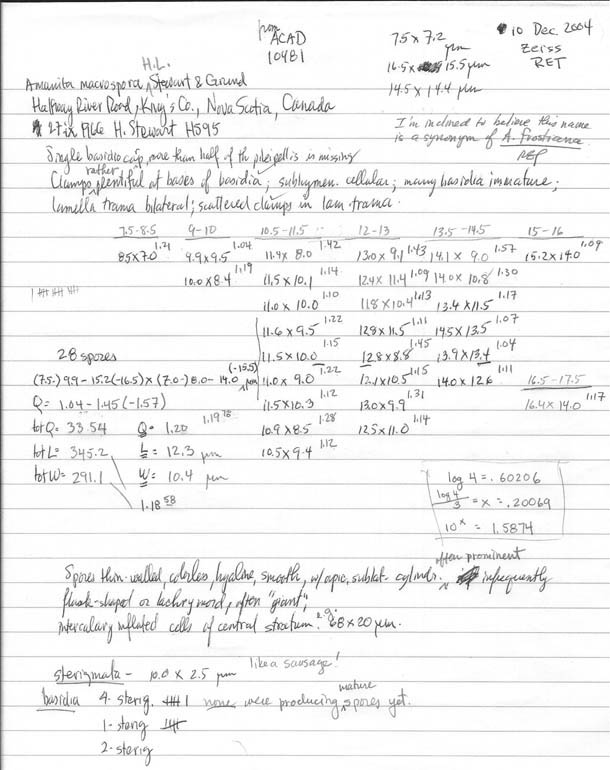 from ACAD 10481
7.5 x 7.2 µm
16.5 x 15.5 µm
14.5 x 14.4 µm
10 Dec. 2004
Zeiss
RET
Amanita macrospora H.L. Stewart & Grund
Halfway River Road, King's Co., Nova Scotia, Canada
27 ix 1966 H. Stewart HS95
I'm inclined to believe this name
is a synonym of A. frostiana.
RET
Single basidiocarp, more than half of the pileipellis is missing
Clamps rather plentiful at bases of basidia; subhymen. cellular; many basidia immature;
lamella trama bilateral; scattered clamps in lam. trama.
7.5-8.5 9-10 10.5-11.5 12-13 13.5-14.5 15-16
8.5 x 7.0 1.21 9.9 x 9.5 1.04 11.4 x 8.0 1.42 13.0 x 9.1 1.43 14.1 x 9.0 1.57 15.2 x 14.0 1.09
10.0 x 8.4 1.19 11.5 x 10.1 1.14 12.4 x 11.4 1.09 14.0 x 10.8 1.30
11.0 x 10.0 1.10 11.8 x 10.4 1.13 13.4 x 11.5 1.17
11.6 x 9.5 1.22 12.8 x 11.5 1.11 14.5 x 13.5 1.07
28 spores 11.5 x 10.0 1.15 12.8 x 8.8 1.45 13.9 x 13.4 1.04
(7.5-) 9.9 - 15.2 (-16.5) x (7.0-) 8.0 - 14.0 (-15.5) µm 11.0 x 9.0 1.22 12.1 x 10.5 1.15 14.0 x 12.6 1.11 16.5-17.5
Q = 1.04 - 1.45 (-1.57) 11.5 x 10.3 1.12 13.0 x 9.9 1.31 16.4 x 14.0 1.17
tot Q = 33.54 Q = 1.20 1.19 78 10.9 x 8.5 1.28 12.5 x 11.0 1.14
tot L = 345.2 L = 12.3 µm 10.5 x 9.4 1.12
tot W = 291.1 W = 10.4 µm
1.18 58
log 4 = .60206
log 4 / 3 = x = .20069
10^x = 1.5874
Spores thin-walled, colorless, hyaline, smooth, w/ apic. sublat. cylindr. often prominent infrequently
flask-shaped or lachrymoid, often "giant";
intercalary inflated cells of central stratum e.g. 68 x 20 µm.
sterigmata - 10.0 x 2.5 µm like a sausage!
basidia 4-sterig. 卌 I none were producing mature spores yet.
1-sterig 卌
2-sterig